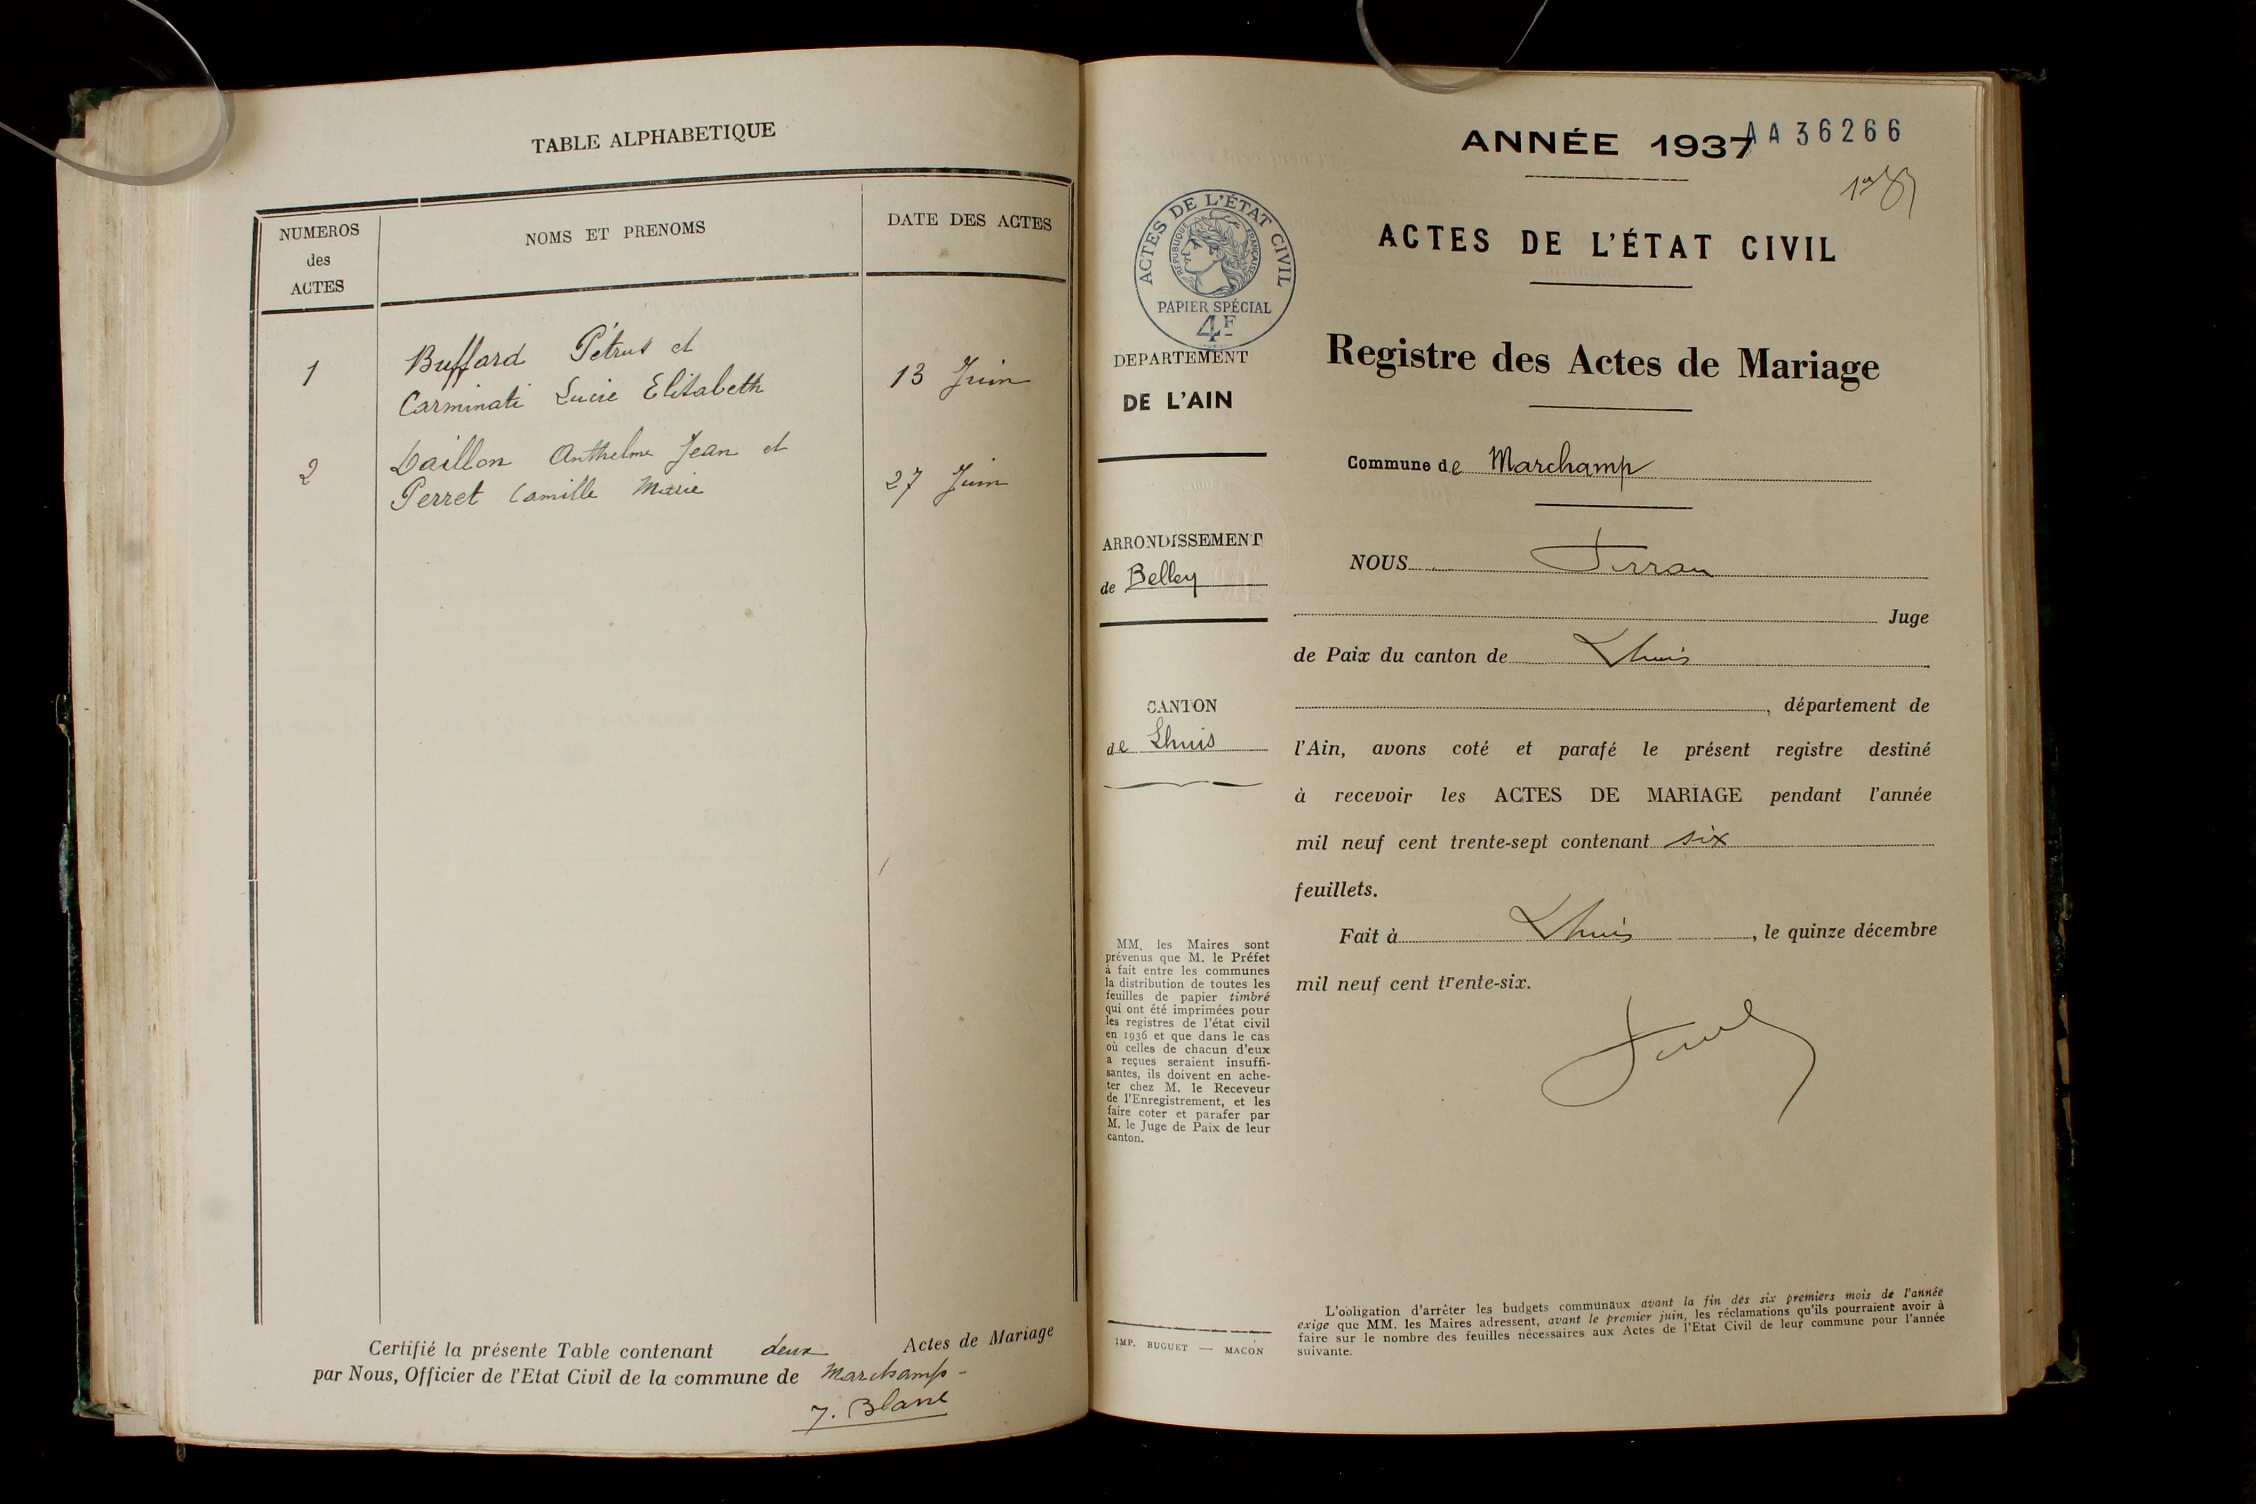 TABLE ALPHABETIQUE
NUMEROS
des
ACTES
NOMS ET PRENOMS
DATE DES ACTES
1
Buffard Pétrus et
Carminati Lucie Elisabeth
13 Juin
2
Daillon Anthelme Jean et
Perret Camille Marie
27 Juin
Certifié la présente Table contenant deux Actes de Mariage
par Nous, Officier de l'Etat Civil de la commune de Marchamp -
J. Blanc
ANNÉE 1937
AA36266
ACTES DE L'ÉTAT CIVIL
RÉPUBLIQUE FRANÇAISE
PAPIER SPÉCIAL
4F
DEPARTEMENT
DE L'AIN
ARRONDISSEMENT
de Belley
CANTON
de Lhuis
MM. les Maires sont
prévenus que M. le Préfet
à fait entre les communes
la distribution de toutes les
feuilles de papier timbré
qui ont été imprimées pour
les registres de l'état civil
en 1936 et que dans le cas
où celles de chacun d'eux
a reçues seraient insuffi-
santes, ils doivent en ache-
ter chez M. le Receveur
de l'Enregistrement, et les
faire coter et parafer par
M. le Juge de Paix de leur
canton.
IMP. BUGUET — MACON
ACTES DE L'ÉTAT CIVIL
Registre des Actes de Mariage
Commune de Marchamp
NOUS
Juge
de Paix du canton de Lhuis
, département de
l'Ain, avons coté et parafé le présent registre destiné
à recevoir les ACTES DE MARIAGE pendant l'année
mil neuf cent trente-sept contenant six
feuillets.
Fait à Lhuis, le quinze décembre
mil neuf cent trente-six.
L'obligation d'arrêter les budgets communaux avant la fin des six premiers mois de l'année
exige que MM. les Maires adressent, avant le premier juin, les réclamations qu'ils pourraient avoir à
faire sur le nombre des feuilles nécessaires aux Actes de l'Etat Civil de leur commune pour l'année
suivante.